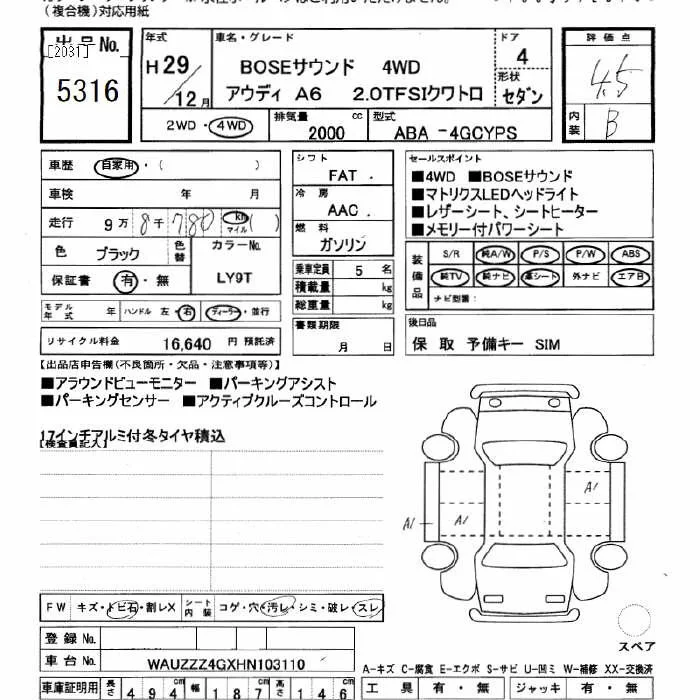 (複合機)対応用紙
出品No.
[2031]
5316
年式
H29/12月
車名・グレード
BOSEサウンド 4WD
アウディ A6 2.0TFSIクワトロ
ドア
4
形状
セダン
評価点
4.5
内装
B
2WD・4WD
排気量 2000 cc
型式 ABA -4GCYPS
車歴 自家用・( )
車検 年 月
走行 9万8千780 km マイル ( )
色 ブラック
色替
カラーNo.
LY9T
保証書 有・無
モデル年式 年
ハンドル 左・右
ディーラー・並行
リサイクル料金 16,640 円 預託済
シフト
FAT .
冷房
AAC .
燃料
ガソリン
乗車定員 5 名
積載量 kg
総重量 kg
書類期限
月 日
セールスポイント
■4WD ■BOSEサウンド
■マトリクスLEDヘッドライト
■レザーシート、シートヒーター
■メモリー付パワーシート
装備品
S/R 純A/W P/S P/W ABS
純TV 純ナビ 革シート 外ナビ エアB
ナビ型番:
後日品
保 取 予備キー SIM
【出品店申告欄(不良箇所・欠品・注意事項等)】
■アラウンドビューモニター ■パーキングアシスト
■パーキングセンサー ■アクティブクルーズコントロール
17インチアルミ付冬タイヤ積込
【検査員記入】
A1
A1
A1
FW キズ・トビ石・割レX
シート内装 コゲ・穴・汚レ・シミ・破レ・スレ
スペア
登録 No.
車台 No. WAUZZZ4GXHN103110
A-キズ C-腐食 E-エクボ S-サビ U-凹ミ W-補修 XX-交換済
車庫証明用 長さ 494cm 幅 187cm 高さ 146cm
工具 有・無 ジャッキ 有・無